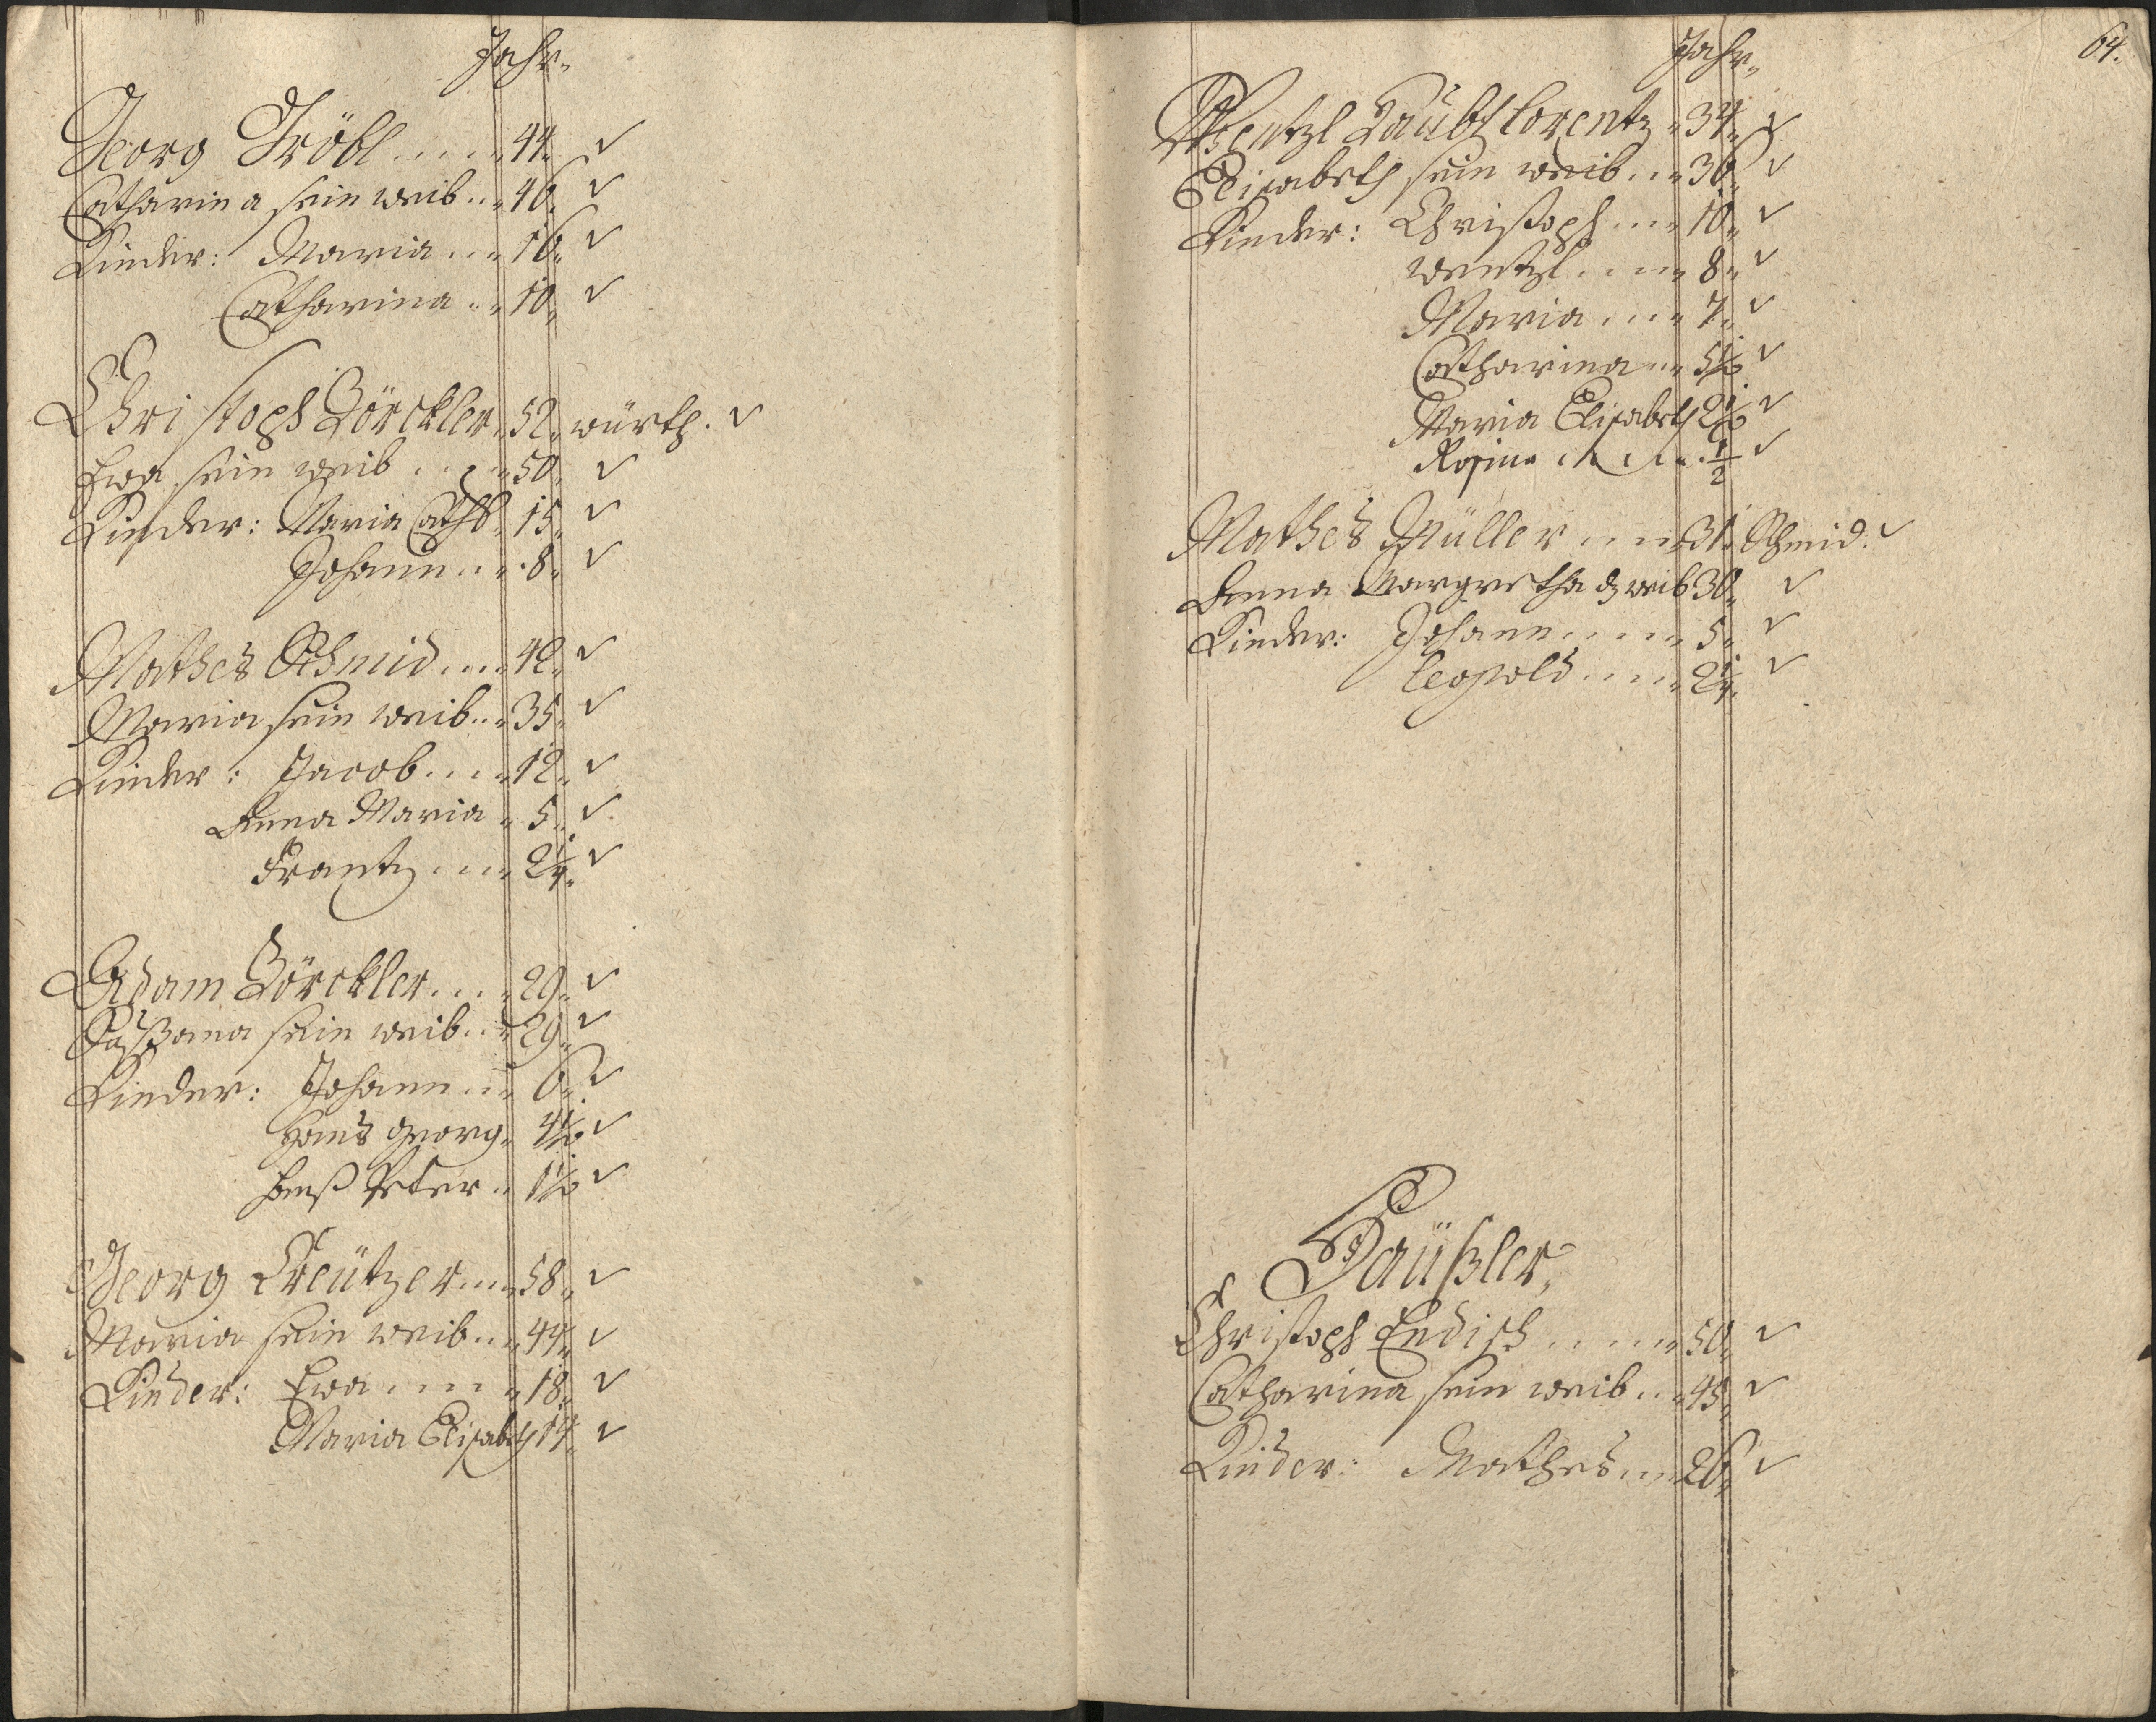 Jahr.
Georg Tröbl ..... 44. ✓
Catharina sein weib .. 46. ✓
Kinder: Maria ... 16. ✓
Catharina .. 10. ✓
Christoph Görckler 52. würth. ✓
Ewa sein weib .... 50. ✓
Kinder: Maria Cath. 15. ✓
Johann .... 8. ✓
Mathes Schmid .... 42. ✓
Maria sein weib .. 35. ✓
Kinder: Jacob .... 12. ✓
Anna Maria . 5. ✓
Frantz .... 2 1/4. ✓
Adam Görckler .... 29. ✓
sein weib .. 29. ✓
Kinder: Johann ... 6. ✓
Hans Georg . 4 1/2 ✓
Hanß Peter .. 1 1/2 ✓
Georg Creützer .... 58. ✓
Maria sein weib ... 44. ✓
Kinder: Ewa ..... 18. ✓
Maria Elisabeth 14. ✓
64.
Jahr.
Wentzl Lorentz . 34. ✓
Elisabeth sein weib ... 36. ✓
Kinder: Christoph .... 10. ✓
Wentzl ..... 8. ✓
Maria .... 7. ✓
Catharina ... 5 1/2 ✓
Maria Elisabeth 2 1/2 ✓
Rosina ..... 1/2 ✓
Mathes Müller .... 31. Schmid. ✓
Anna Margretha weib 30. ✓
Kinder: Johann ..... 5. ✓
Leopold ..... 2 1/4. ✓
Häüßler.
Christoph Endisch ..... 50. ✓
Catharina sein weib ... 45. ✓
Kinder: Mathes ... 26. ✓